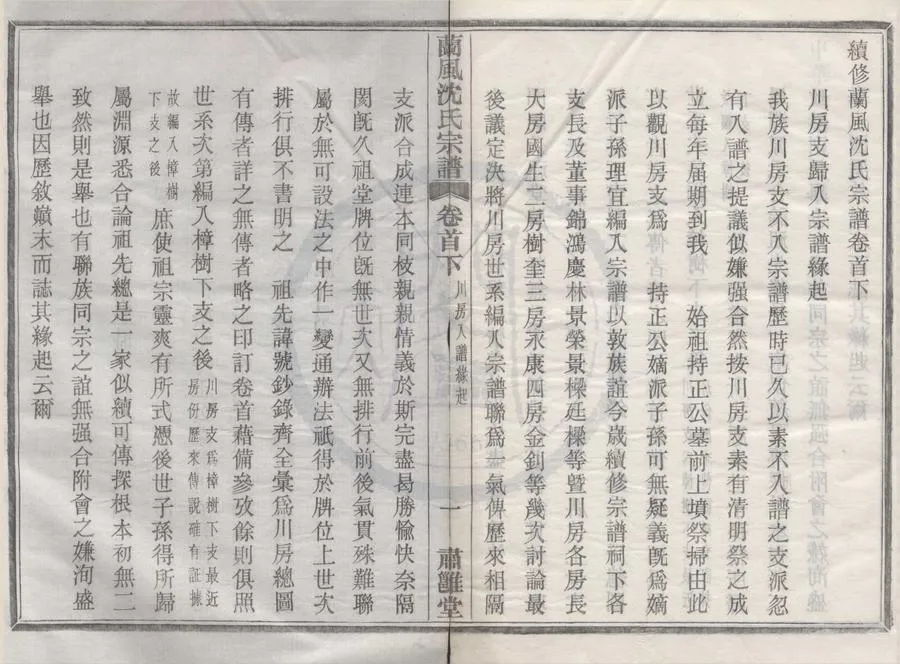 續修蘭風沈氏宗譜卷首下
川房支歸入宗譜緣起
我族川房支不入宗譜歷時已久以素不入譜之支派忽
有入譜之提議似嫌强合然按川房支素有清明祭之成
立每年屆期到我　始祖持正公墓前上墳祭掃由此
以觀川房支爲　持正公嫡派子孫可無疑義旣爲嫡
派子孫理宜編入宗譜以敦族誼今歲續修宗譜祠下各
支長及董事錦鴻慶林景榮景樑廷樑等暨川房各房長
大房國生二房樹奎三房永康四房金釗等幾次討論最
後議定決將川房世系編入宗譜聯爲一氣俾歷來相隔
蘭風沈氏宗譜
卷首下
川房入譜緣起
一
肅雝堂
支派合成連本同枝親親情義於斯完盡曷勝愉快奈隔
閡旣久祖堂牌位旣無世次又無排行前後氣貫殊難聯
屬於無可設法之中作一變通辦法祇得於牌位上世次
排行俱不書明之　祖先諱號鈔錄齊全彙爲川房總圖
有傳者詳之無傳者略之印訂卷首藉備參攷餘則俱照
世系次第編入樟樹下支之後
川房支爲樟樹下支最近
房份歷來傳說確有証據
故編入樟樹
下支之後
庶使祖宗靈爽有所式憑後世子孫得所歸
屬淵源悉合論祖先總是一家似續可傳探根本初無二
致然則是舉也有聯族同宗之誼無强合附會之嫌洵盛
舉也因歷敘巔末而誌其緣起云爾